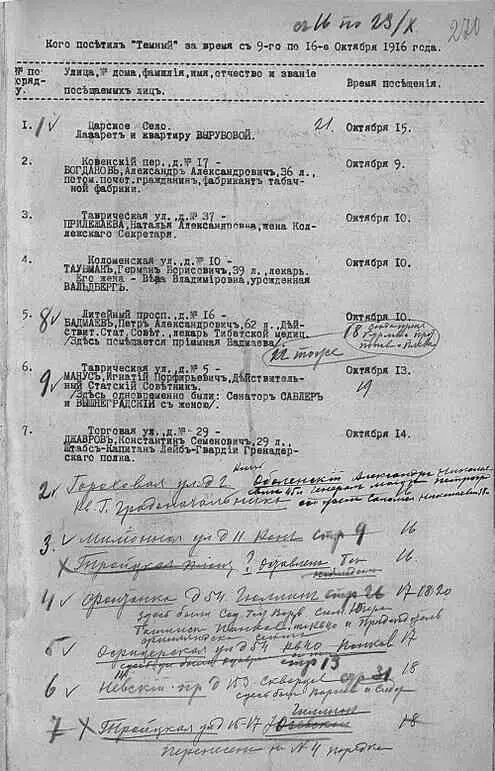 съ 16 по 23/X
270
Кого посѣтилъ "Темный" за время съ 9-го по 16-е Октября 1916 года.
№ по поряд-у.
Улица,№ дома,фамилія,имя,отчество и званіе посѣщаемыхъ лицъ.
Время посѣщенія.
1. 1 ✓ Царское Село. 21. Октября 15.
Лазаретъ и квартиру ВЫРУБОВОЙ.
2. Ковенскій пер.,д.№ 17 - Октября 9.
БОГДАНОВЪ,Александръ Александровичъ,36 л.,
потом.почет.гражданин,фабрикантъ табач-
ной фабрики.
3. Таврическая ул.,д.№ 37 - Октября 10.
ПРИЛЕЖАЕВА,Наталья Александровна,жена Кол-
лежскаго Секретаря.
4. Коломенская ул.,д.№ 10 - Октября 10.
ТАУБМАН,Германъ Борисовичъ,39 л.,лекарь.
Его жена - Вѣра Владиміровна,урожденная
ВАЛЬДБЕРГЪ.
5. 8 ✓ Литейный просп.,д.№ 16 - Октября 10.
БАДМАЕВЪ,Петръ Александровичъ,62 л.,Дѣй- 18
ствит.Стат.Совѣт.,лекарь Тибетской медиц.
/Здѣсь помѣщается пріемная Бадмаева/ 22 тоже
6. 9 ✓ Таврическая ул.,д.№ 5 - Октября 13.
МАНУСЪ,Игнатій Порфирьевичъ,Дѣйствитель- 19
ный Статскій Совѣтник.
/Здѣсь одновременно были: Сенаторъ САБЛЕР
и ВЫШНЕГРАДСКІЙ съ женою/.
7. Торговая ул.,д.№ 29 - Октября 14.
ДЖАВРОВЪ,Константин Семеновичъ,29 л.,
Штабсъ-Капитан Лейбъ-Гвардіи Гренадер-
скаго полка.
2 ✓ Гороховая ул д 2 Оболенскій Александръ Николаев
кв. Г. Градоначальника
3. ✓ Милліонная ул д 11 стр 9 16
X Троицкая ? 16
4 ✓ Фонтанка д 54 стр 26 17-18-20
здѣсь были
5 ✓ Офицерская ул д 54 кв 40 17
стр 13
6 ✓ Невскій пр д 153 Скворцов стр 31 18
здѣсь был
7 X Троицкая ул д 15-17 18
Перенесен на № 4 порядка